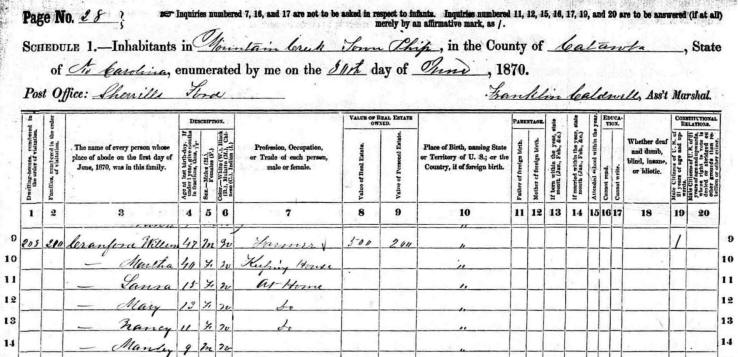 Page No. 28
☞ Inquiries numbered 7, 16, and 17 are not to be asked in respect to infants. Inquiries numbered 11, 12, 15, 16, 17, 19, and 20 are to be answered (if at all)
merely by an affirmative mark, as /.
SCHEDULE 1.—Inhabitants in Mountain Creek Town Ship, in the County of Catawba, State
of N. Carolina, enumerated by me on the day of June, 1870.
Post Office: Sherrills Ford Franklin Caldwell, Ass't Marshal.
Dwelling-houses, numbered in the order of visitation.
Families, numbered in the order of visitation.
The name of every person whose place of abode on the first day of June, 1870, was in this family.
DESCRIPTION.
Age at last birth-day.
Sex.—Males (M.), Females (F.)
Profession, Occupation, or Trade of each person, male or female.
VALUE OF REAL ESTATE OWNED.
Value of Real Estate.
Value of Personal Estate.
Place of Birth, naming State or Territory of U. S.; or the Country, if of foreign birth.
PARENTAGE.
Father of foreign birth.
Mother of foreign birth.
If born within the year, state month (Jan., Feb., &c.)
If married within the year, state month (Jan., Feb., &c.)
Attended school within the year.
EDUCATION.
Cannot read.
Cannot write.
Whether deaf and dumb, blind, insane, or idiotic.
CONSTITUTIONAL RELATIONS.
1 2 3 4 5 6 7 8 9 10 11 12 13 14 15 16 17 18 19 20
9 203 200 William 47 M W Farmer 500 200 " / 9
10 — Martha 40 F W Keeping House " 10
11 — 15 F W At Home " 11
12 — Mary 13 F W do " 12
13 — Nancy 11 F W do " 13
14 — Manley 9 M W " 14